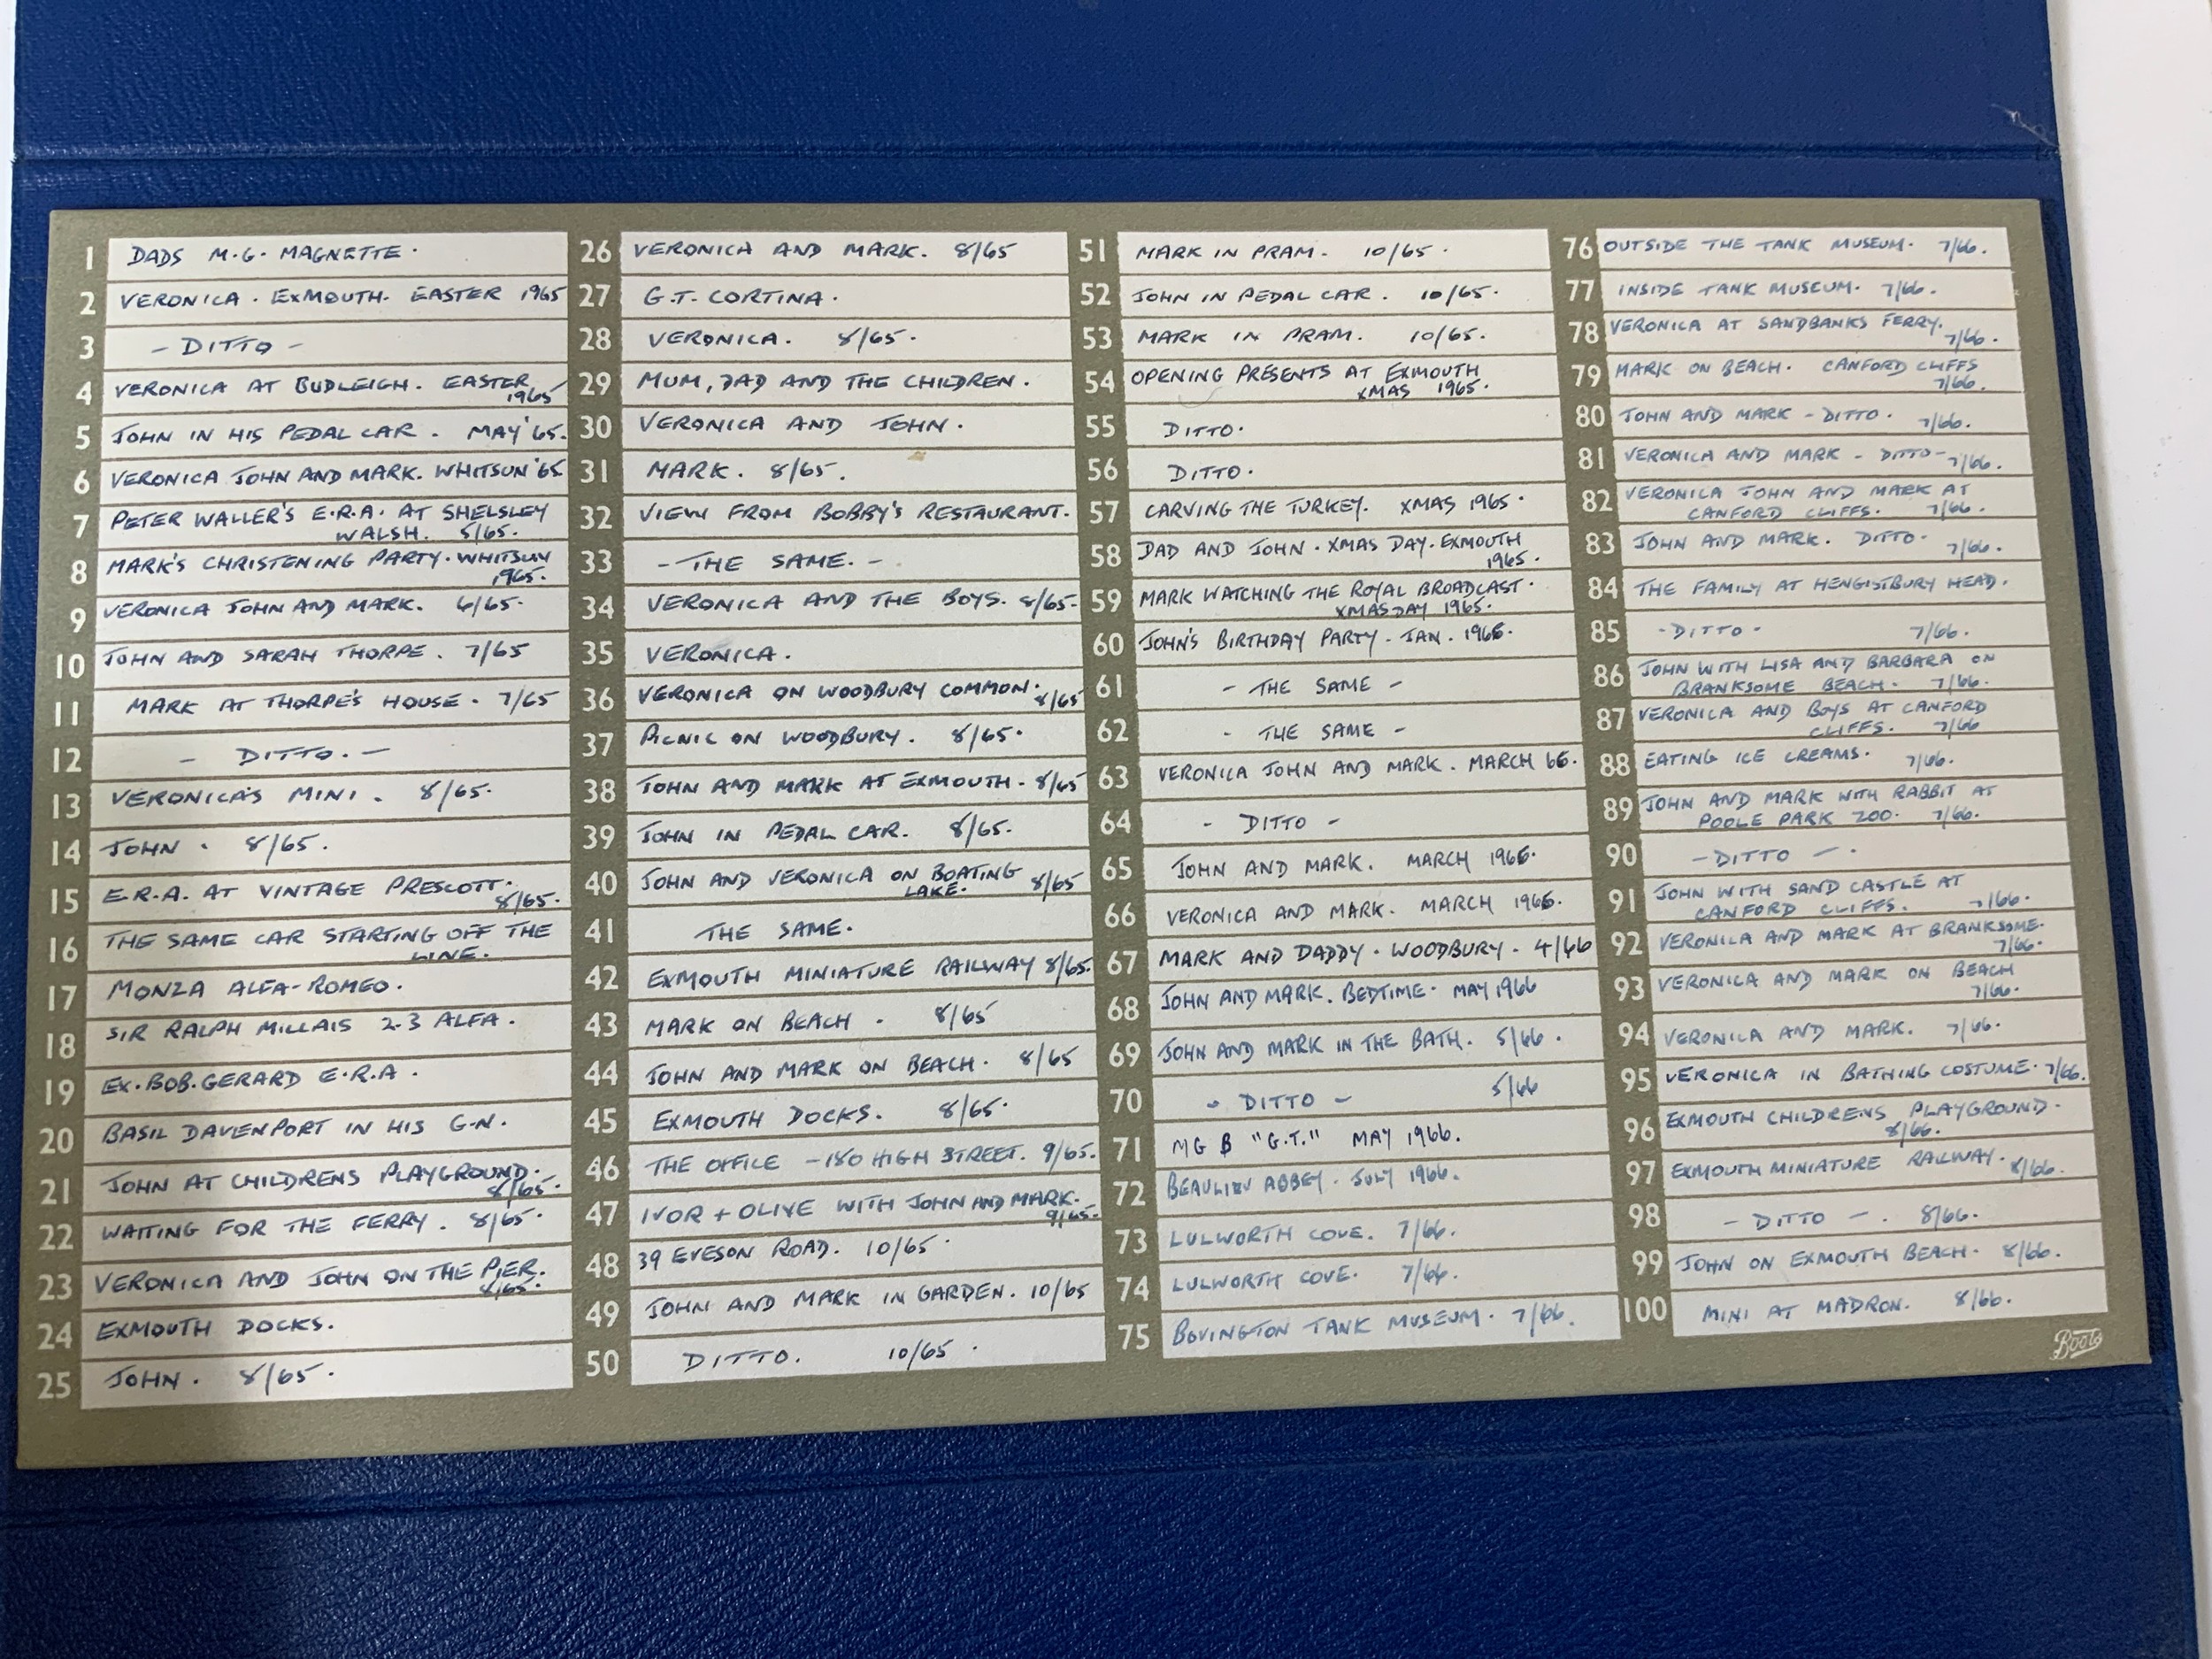 1 DADS M.G. MAGNETTE.
2 VERONICA. EXMOUTH. EASTER 1965
3 - DITTO -
4 VERONICA AT BUDLEIGH. EASTER
1965
5 JOHN IN HIS PEDAL CAR. MAY '65.
6 VERONICA JOHN AND MARK. WHITSUN '65
7 PETER WALLER'S E.R.A. AT SHELSLEY
WALSH. 5/65.
8 MARK'S CHRISTENING PARTY. WHITSUN
1965.
9 VERONICA JOHN AND MARK. 6/65.
10 JOHN AND SARAH THORPE. 7/65
11 MARK AT THORPE'S HOUSE. 7/65
12 - DITTO. -
13 VERONICA'S MINI. 8/65.
14 JOHN. 8/65.
15 E.R.A. AT VINTAGE PRESCOTT.
8/65.
16 THE SAME CAR STARTING OFF THE
LINE.
17 MONZA ALFA-ROMEO.
18 SIR RALPH MILLAIS 2.3 ALFA.
19 EX. BOB. GERARD E.R.A.
20 BASIL DAVENPORT IN HIS G.N.
21 JOHN AT CHILDRENS PLAYGROUND.
8/65.
22 WAITING FOR THE FERRY. 8/65.
23 VERONICA AND JOHN ON THE PIER.
8/65.
24 EXMOUTH DOCKS.
25 JOHN. 8/65.
26 VERONICA AND MARK. 8/65
27 G.T. CORTINA.
28 VERONICA. 8/65.
29 MUM, DAD AND THE CHILDREN.
30 VERONICA AND JOHN.
31 MARK. 8/65.
32 VIEW FROM BOBBY'S RESTAURANT.
33 - THE SAME. -
34 VERONICA AND THE BOYS. 8/65.
35 VERONICA.
36 VERONICA ON WOODBURY COMMON.
8/65
37 PICNIC ON WOODBURY. 8/65.
38 JOHN AND MARK AT EXMOUTH. 8/65
39 JOHN IN PEDAL CAR. 8/65.
40 JOHN AND VERONICA ON BOATING
LAKE. 8/65
41 THE SAME.
42 EXMOUTH MINIATURE RAILWAY 8/65.
43 MARK ON BEACH. 8/65
44 JOHN AND MARK ON BEACH. 8/65
45 EXMOUTH DOCKS. 8/65.
46 THE OFFICE - 180 HIGH STREET. 9/65.
47 IVOR + OLIVE WITH JOHN AND MARK.
9/65.
48 39 EVESON ROAD. 10/65.
49 JOHN AND MARK IN GARDEN. 10/65
50 DITTO. 10/65.
51 MARK IN PRAM. 10/65.
52 JOHN IN PEDAL CAR. 10/65.
53 MARK IN PRAM. 10/65.
54 OPENING PRESENTS AT EXMOUTH
XMAS 1965.
55 DITTO.
56 DITTO.
57 CARVING THE TURKEY. XMAS 1965.
58 DAD AND JOHN. XMAS DAY. EXMOUTH
1965.
59 MARK WATCHING THE ROYAL BROADCAST.
XMAS DAY 1965.
60 JOHN'S BIRTHDAY PARTY. JAN. 1966.
61 - THE SAME -
62 - THE SAME -
63 VERONICA JOHN AND MARK. MARCH 66.
64 - DITTO -
65 JOHN AND MARK. MARCH 1966.
66 VERONICA AND MARK. MARCH 1966.
67 MARK AND DADDY. WOODBURY. 4/66
68 JOHN AND MARK. BEDTIME. MAY 1966
69 JOHN AND MARK IN THE BATH. 5/66.
70 - DITTO - 5/66
71 MG B "G.T." MAY 1966.
72 BEAULIEU ABBEY. JULY 1966.
73 LULWORTH COVE. 7/66.
74 LULWORTH COVE. 7/66.
75 BOVINGTON TANK MUSEUM. 7/66.
76 OUTSIDE THE TANK MUSEUM. 7/66.
77 INSIDE TANK MUSEUM. 7/66.
78 VERONICA AT SANDBANKS FERRY.
7/66.
79 MARK ON BEACH. CANFORD CLIFFS
7/66.
80 JOHN AND MARK - DITTO. 7/66.
81 VERONICA AND MARK - DITTO - 7/66.
82 VERONICA JOHN AND MARK AT
CANFORD CLIFFS. 7/66.
83 JOHN AND MARK. DITTO. 7/66.
84 THE FAMILY AT HENGISTBURY HEAD.
85 - DITTO - 7/66.
86 JOHN WITH LISA AND BARBARA ON
BRANKSOME BEACH. 7/66.
87 VERONICA AND BOYS AT CANFORD
CLIFFS. 7/66
88 EATING ICE CREAMS. 7/66.
89 JOHN AND MARK WITH RABBIT AT
POOLE PARK ZOO. 7/66.
90 - DITTO - .
91 JOHN WITH SAND CASTLE AT
CANFORD CLIFFS. 7/66.
92 VERONICA AND MARK AT BRANKSOME.
7/66.
93 VERONICA AND MARK ON BEACH
7/66.
94 VERONICA AND MARK. 7/66.
95 VERONICA IN BATHING COSTUME. 7/66.
96 EXMOUTH CHILDRENS PLAYGROUND.
8/66.
97 EXMOUTH MINIATURE RAILWAY. 8/66.
98 - DITTO - . 8/66.
99 JOHN ON EXMOUTH BEACH. 8/66.
100 MINI AT MADRON. 8/66.
Boots